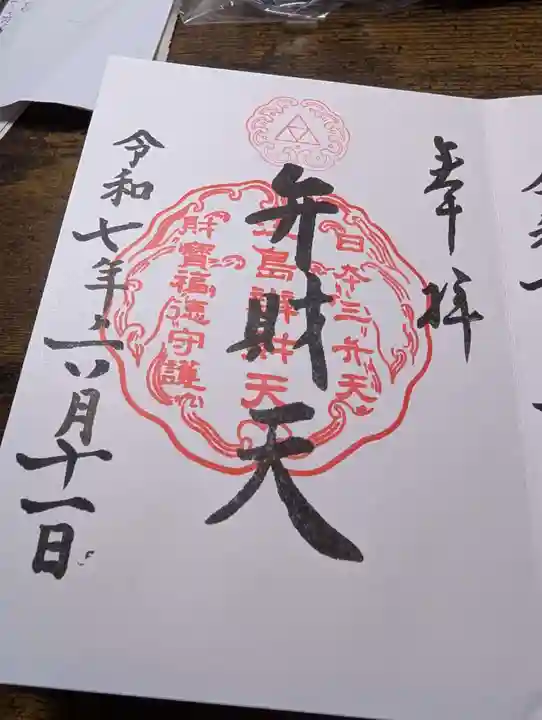 奉拝
日本三弁天
島辨財天
財寶福徳守護
弁財天
令和七年六月十一日